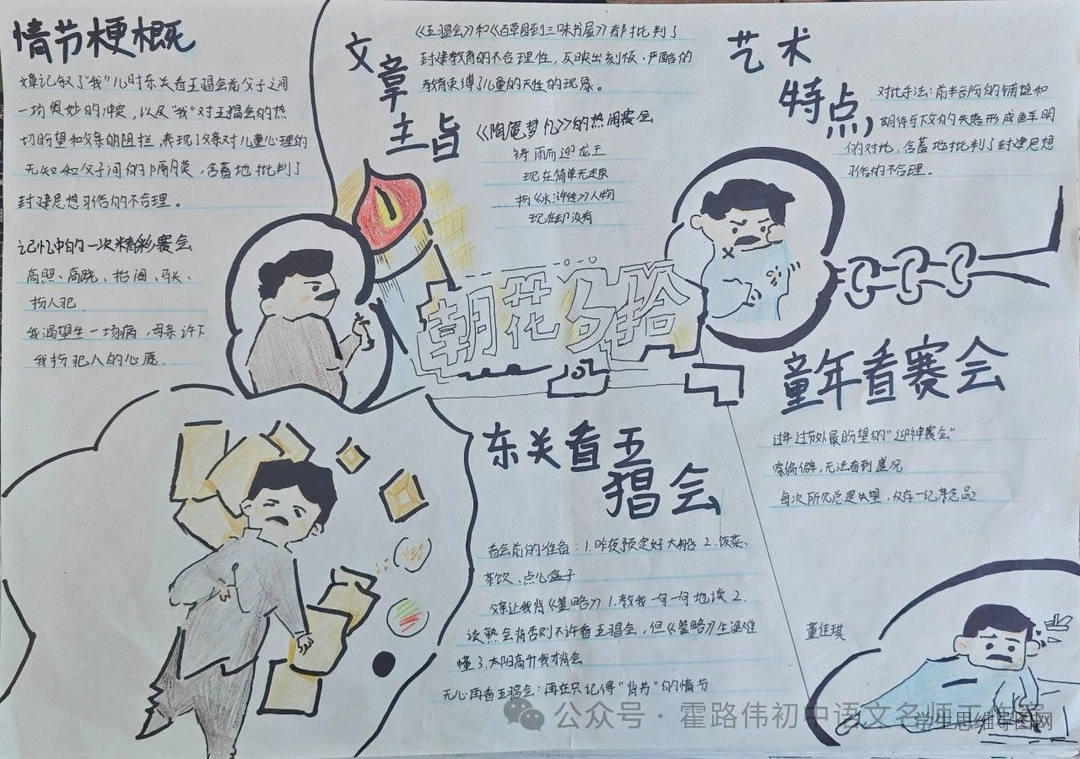 情节梗概
文章记叙了"我"儿时东关看五猖会前父子之间
一场奥妙的冲突,以及"我"对五猖会的热
切盼望和父亲的阻拦,表现了父亲对儿童心理的
无知和父子间的隔膜,含蓄地批判了
封建思想习俗的不合理。
记忆中的一次精彩赛会
高照、高跷、抬阁、马头、
扮人犯
我渴望生一场病,母亲许下
我扮犯人的心愿
文章主旨
《五猖会》和《百草园到三味书屋》都批判了
封建教育的不合理性,反映出刻板、严酷的
教育束缚了儿童的天性的现象。
《陶庵梦忆》的热闹赛会
祷雨而迎龙王
现在简单无趣
扮《水浒传》人物
现在却没有
艺术
特点
对比手法:前半台阶的铺垫和
期待与下文的失落形成鲜明
的对比,含蓄地批判了封建思想
习俗的不合理。
朝花夕拾
童年看赛会
过年过节外最盼望的"迎神赛会"
家偏僻,无法看到盛况
每次所见总是失望,仅存一纪念品
东关看五
猖会
看会前的准备:1.昨夜预定好大船 2.饭菜、
茶饮、点心盒子
父亲让我背《鉴略》1.教我一句一句地读 2.
读熟会背否则不许看五猖会,但《鉴略》生涩难
懂 3.太阳高升我才背会
无心再看五猖会:再在只记得"背书"的情节
董佳琪
公众号·霍路伟初中语文名师工作室
学生思维导图网